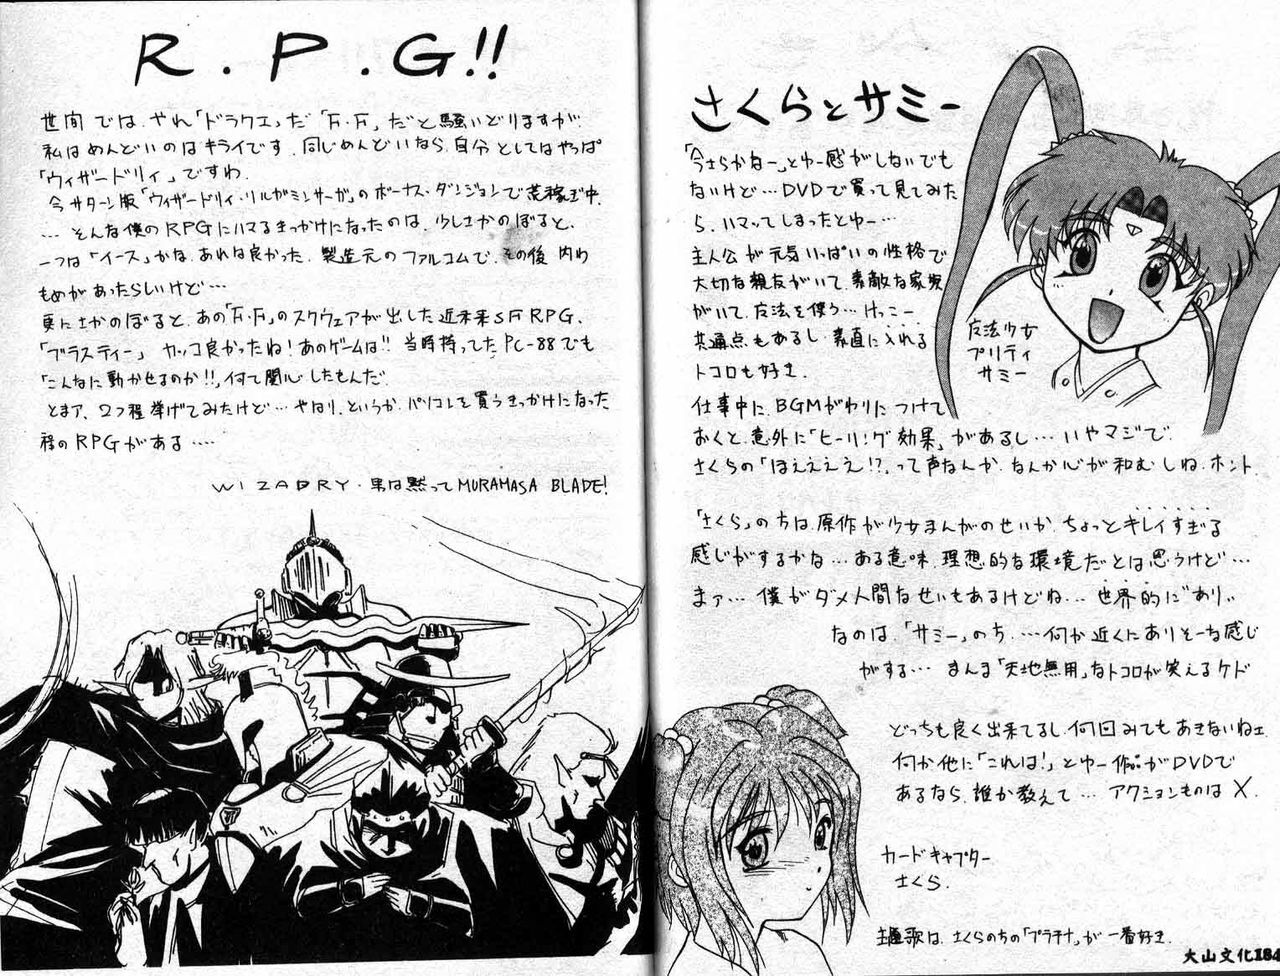 R.P.G!!
世間では、やれ「ドラクエ」だ「F・F」だと騒いどりますが、
私はめんどいのはキライです。同じめんどいなら、自分としてはやっぱ
「ウィザードリィ」ですわ。
今サターン版「ウィザードリィ・リルガミンサーガ」のボーナス・ダンジョンで荒稼ぎ中。
…そんな僕のRPGにハマるきっかけになったのは、少しさかのぼると、
一つは「イース」かな。あれは良かった。製造元のファルコムで、その後内わ
もめがあったらしいけど…
更にさかのぼると、あの「F・F」のスクウェアが出した近未来SF RPG、
「ブラスティー」カッコ良かったね!あのゲームは!!当時持ってたPC-88でも
「こんなに動かせるのか!!」何て関心したもんだ。
とまァ、2つ程挙げてみたけど…やはり、というか、パソコンを買うきっかけになった
程のRPGがある….
WIZADRY・男は黙ってMURAMASA BLADE!
さくらとサミー
「今さらかなー」とゆー感がしないでも
ないけど…DVDで買って見てみた
ら、ハマってしまったとゆー…
主人公が元気いっぱいの性格で
大切な親友がいて、素敵な家族
がいて、魔法を使う…けっこー
共通点もあるし、素直に入れる
トコロも好き。
魔法少女
プリティ
サミー
仕事中に、BGMがわりにつけて
おくと、意外に「ヒーリング効果」があるし…いやマジで。
さくらの「ほええええ!?」って声なんか、なんか心が和むしね。ホント
「さくら」の方は、原作が少女まんがのせいか、ちょっとキレイすぎる
感じがするかな…ある意味、理想的な環境だとは思うけど…
まァ…僕がダメ人間なせいもあるけどね…世界的に"あり"
なのは、「サミー」のち.…何か近くにありそーな感じ
がする…まんま「天地無用」なトコロが笑えるケド
どっちも良く出来てるし、何回みてもあきないねェ
何か他に「これは!」とゆー作品がDVDで
あるなら、誰か教えて…アクションものはX.
カードキャプター
さくら.
主題歌は、さくらのちの「プラチナ」が一番好き.
大山文化184